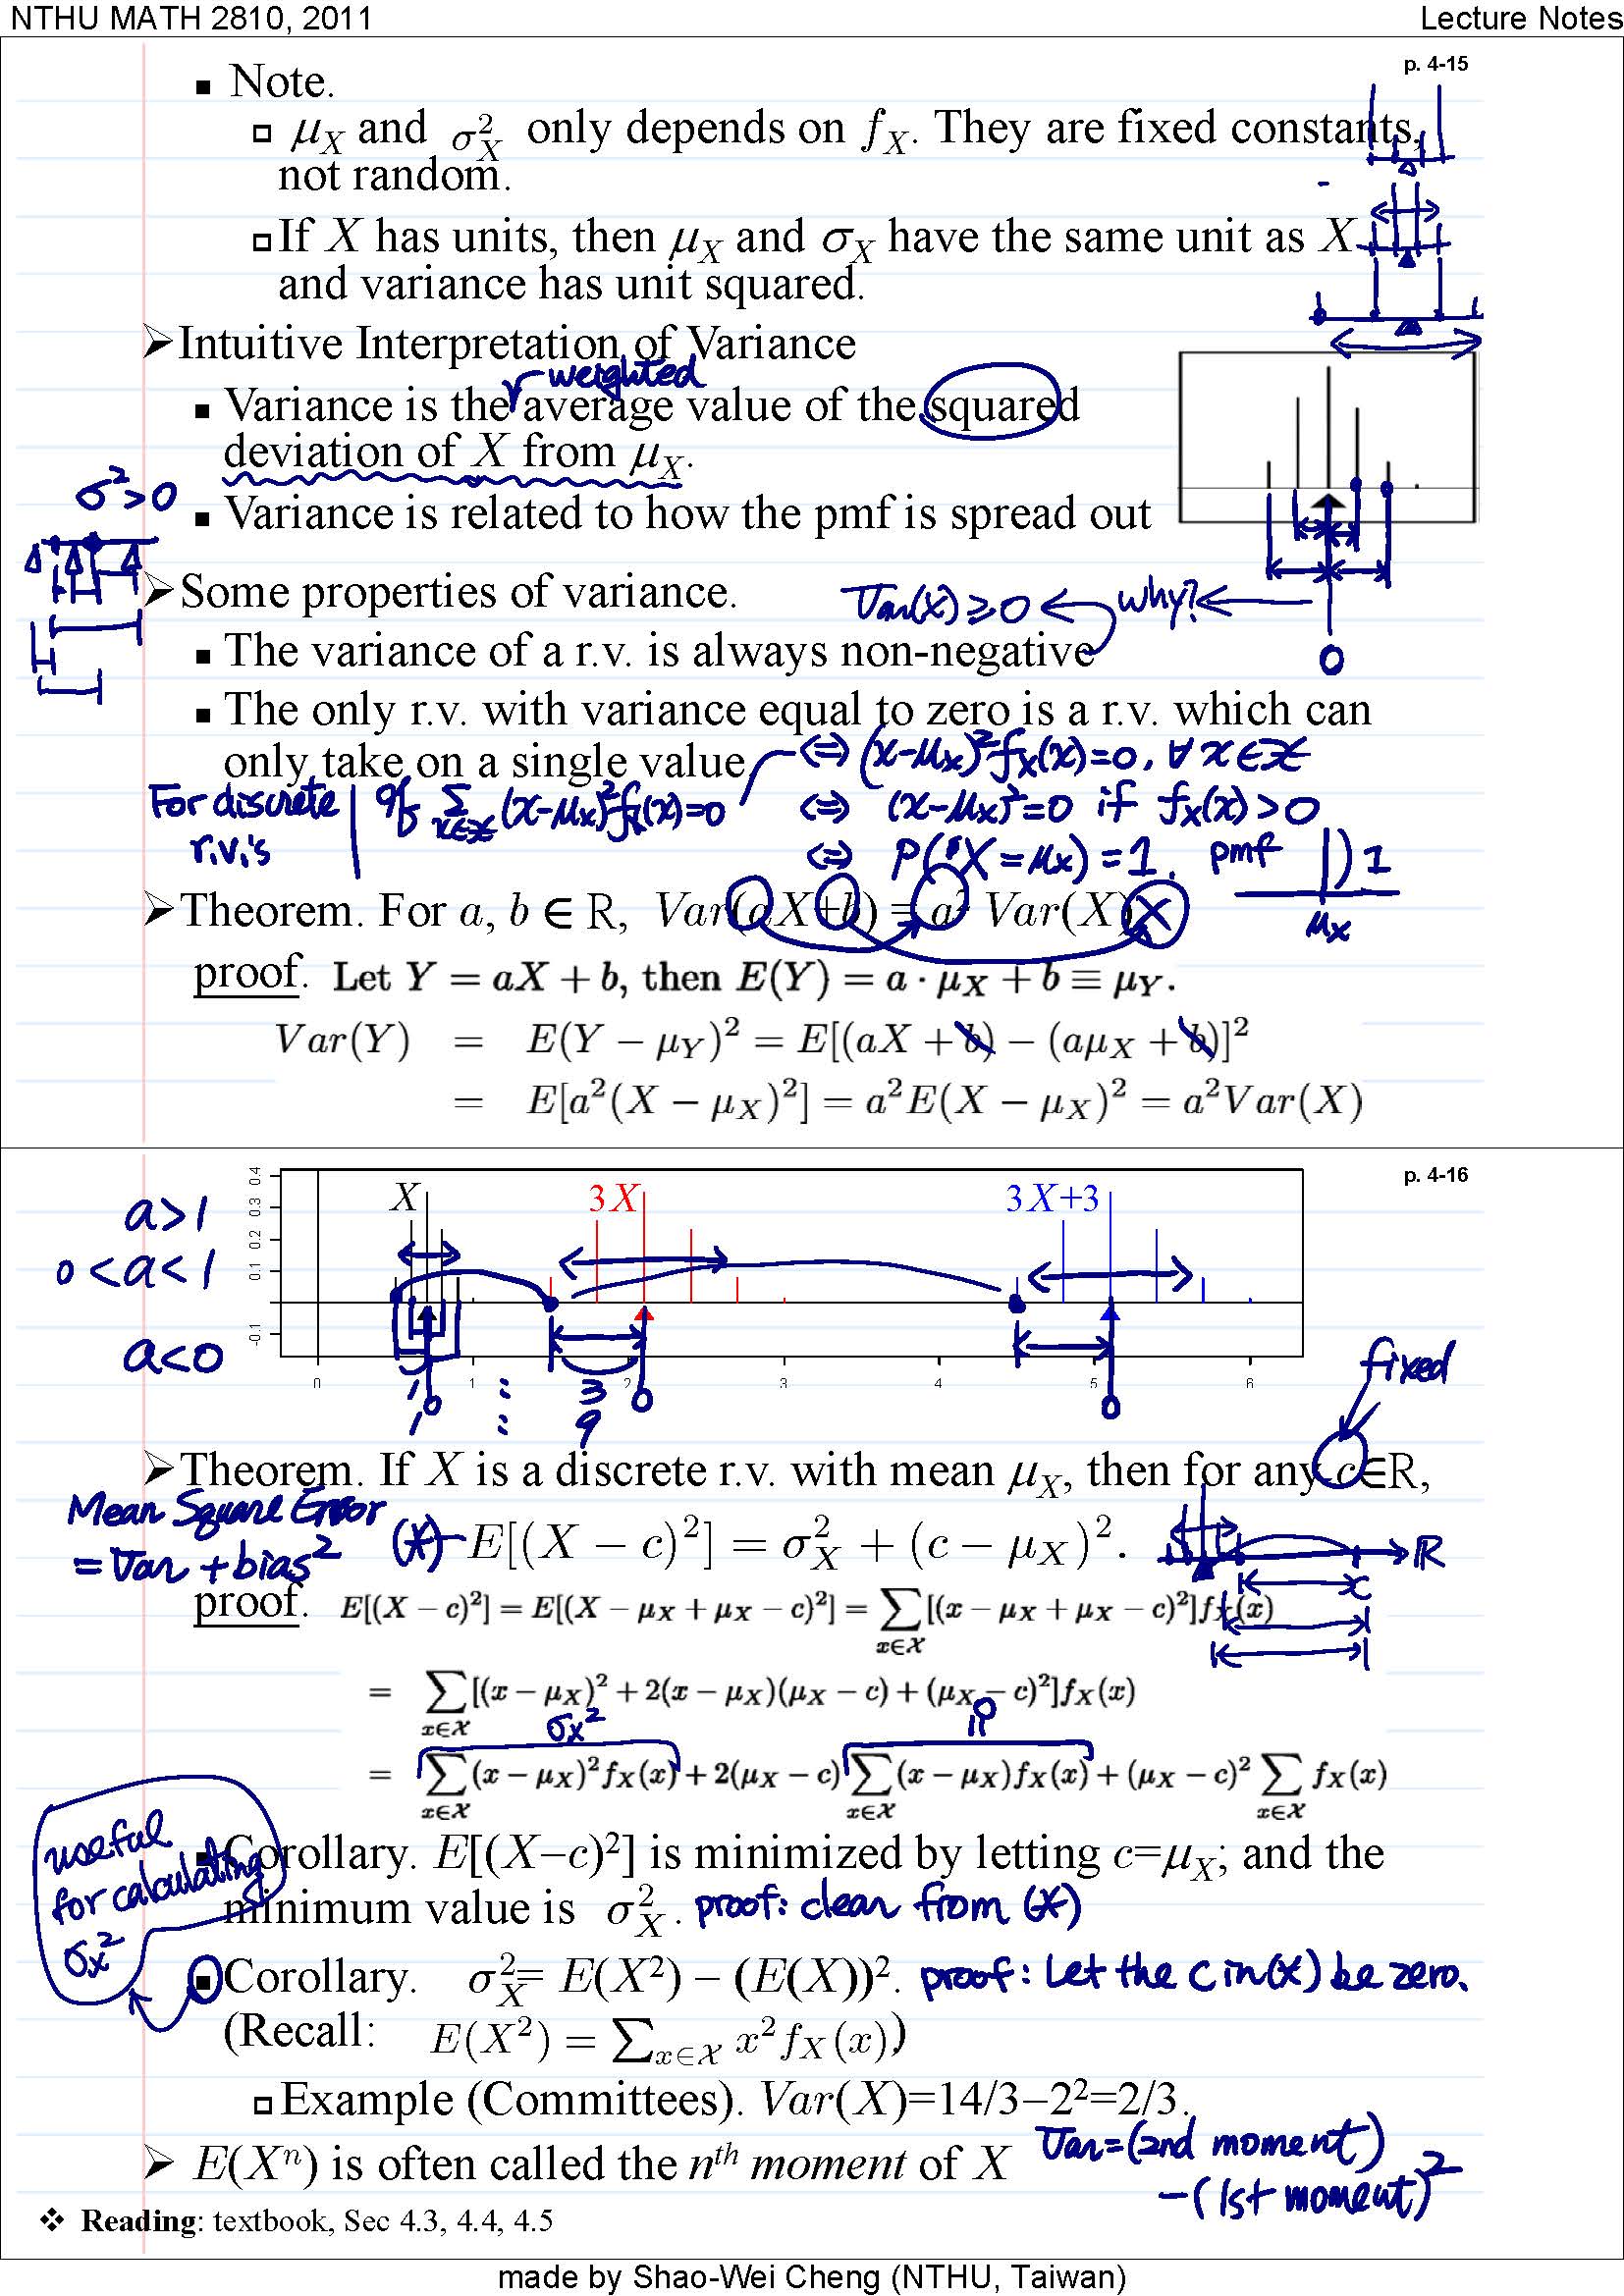 NTHU MATH 2810, 2011
Lecture Notes
p. 4-15
▪ Note.
□ μ_X and σ²_X only depends on f_X. They are fixed constants,
not random.
□ If X has units, then μ_X and σ_X have the same unit as X
and variance has unit squared.
➢ Intuitive Interpretation of Variance
weighted
▪ Variance is the average value of the squared
deviation of X from μ_X.
σ²>0
▪ Variance is related to how the pmf is spread out
➢ Some properties of variance.
Var(X) ≥ 0 ← why? ←
▪ The variance of a r.v. is always non-negative
0
▪ The only r.v. with variance equal to zero is a r.v. which can
only take on a single value
⇔ (x-μx)² fx(x)=0, ∀ x∈𝒳
For discrete r.v.'s
if Σ_{x∈𝒳} (x-μx)² fx(x)=0
⇔ (x-μx)²=0 if fx(x)>0
⇔ P(X=μx)=1.
pmf 1
μx
➢ Theorem. For a, b ∈ ℝ, Var(aX+b) = a² Var(X)
proof. Let Y = aX + b, then E(Y) = a · μ_X + b ≡ μ_Y.
Var(Y) = E(Y − μ_Y)² = E[(aX + b) − (aμ_X + b)]²
= E[a²(X − μ_X)²] = a²E(X − μ_X)² = a²Var(X)
p. 4-16
a>1
0<a<1
a<0
X
3X
3X+3
0.4
0.3
0.2
0.1
-0.1
0 1 2 3 4 5 6
1 0 ⋮ 3 0 0
1 ⋮ 9
fixed
➢ Theorem. If X is a discrete r.v. with mean μ_X, then for any c∈ℝ,
Mean Square Error
= Var + bias²
(*) E[(X − c)²] = σ²_X + (c − μ_X)².
ℝ
c
proof. E[(X − c)²] = E[(X − μ_X + μ_X − c)²] = Σ_{x∈𝒳} [(x − μ_X + μ_X − c)²]f_X(x)
= Σ_{x∈𝒳} [(x − μ_X)² + 2(x − μ_X)(μ_X − c) + (μ_X − c)²]f_X(x)
σx²
0
= Σ_{x∈𝒳} (x − μ_X)² f_X(x) + 2(μ_X − c) Σ_{x∈𝒳} (x − μ_X)f_X(x) + (μ_X − c)² Σ_{x∈𝒳} f_X(x)
useful
for calculating
σx²
▪ Corollary. E[(X−c)²] is minimized by letting c=μ_X; and the
minimum value is σ²_X. proof: clear from (*)
▪ Corollary. σ²_X = E(X²) – (E(X))². proof: Let the c in (*) be zero.
(Recall: E(X²) = Σ_{x∈𝒳} x² f_X(x))
□ Example (Committees). Var(X)=14/3–2²=2/3.
➢ E(Xⁿ) is often called the nth moment of X
Var=(2nd moment)
-(1st moment)²
❖ Reading: textbook, Sec 4.3, 4.4, 4.5
made by Shao-Wei Cheng (NTHU, Taiwan)